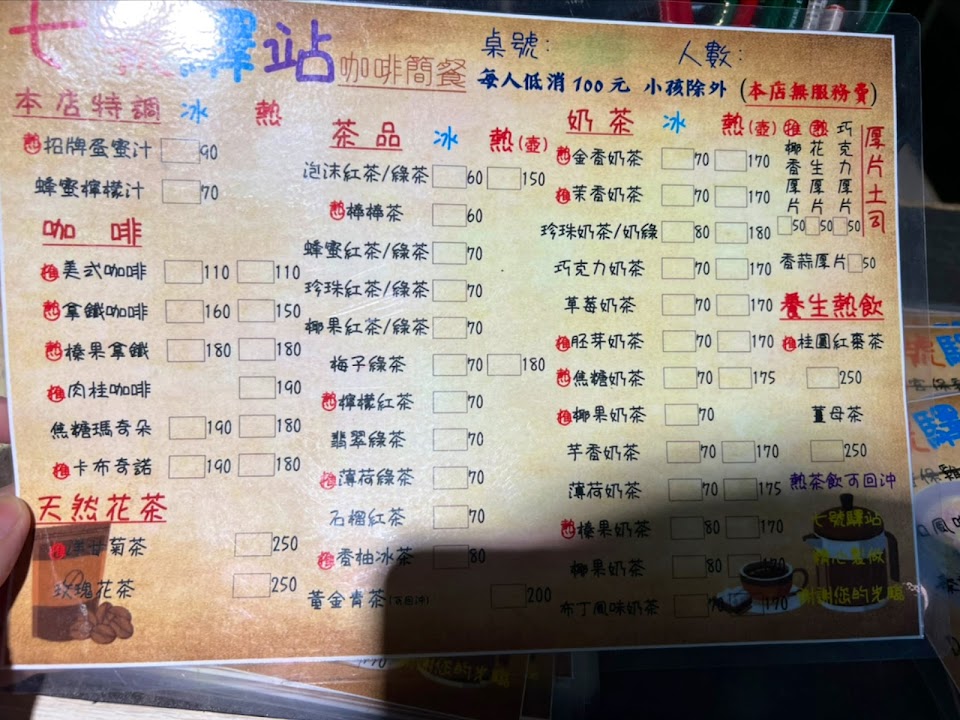 七號驛站 咖啡簡餐
桌號： 人數：
每人低消100元 小孩除外 (本店無服務費)
本店特調 冰 熱
熱 招牌蛋蜜汁 90
蜂蜜檸檬汁 70
咖 啡
推 美式咖啡 110 110
熱 拿鐵咖啡 160 150
熱 榛果拿鐵 180 180
推 肉桂咖啡 190
焦糖瑪奇朵 190 180
推 卡布奇諾 190 180
天然花茶
洋甘菊茶 250
玫瑰花茶 250
茶品 冰 熱(壺)
泡沫紅茶/綠茶 60 150
熱 棒棒茶 60
蜂蜜紅茶/綠茶 70
珍珠紅茶/綠茶 70
椰果紅茶/綠茶 70
梅子綠茶 70 180
熱 檸檬紅茶 70
翡翠綠茶 70
推 薄荷綠茶 70
石榴紅茶 70
推 香柚冰茶 80
黃金肯茶(可回沖) 200
奶茶 冰 熱(壺)
熱 金香奶茶 70 170
推 茉香奶茶 70 170
珍珠奶茶/奶綠 80 180
巧克力奶茶 70 170
草莓奶茶 70 170
推 胚芽奶茶 70 170
熱 焦糖奶茶 70 175
推 椰果奶茶 70
芋香奶茶 70 170
薄荷奶茶 70 175
熱 榛果奶茶 80 170
椰果奶茶 80 170
布丁風味奶茶 70 170
厚片土司
推 椰香厚片 50
熱 花生厚片 50
巧克力厚片 50
香蒜厚片 50
養生熱飲
推 桂圓紅棗茶
250
薑母茶
250
熱茶飲可回沖
七號驛站
精心製做
謝謝您的光臨
70 謝謝您的光臨